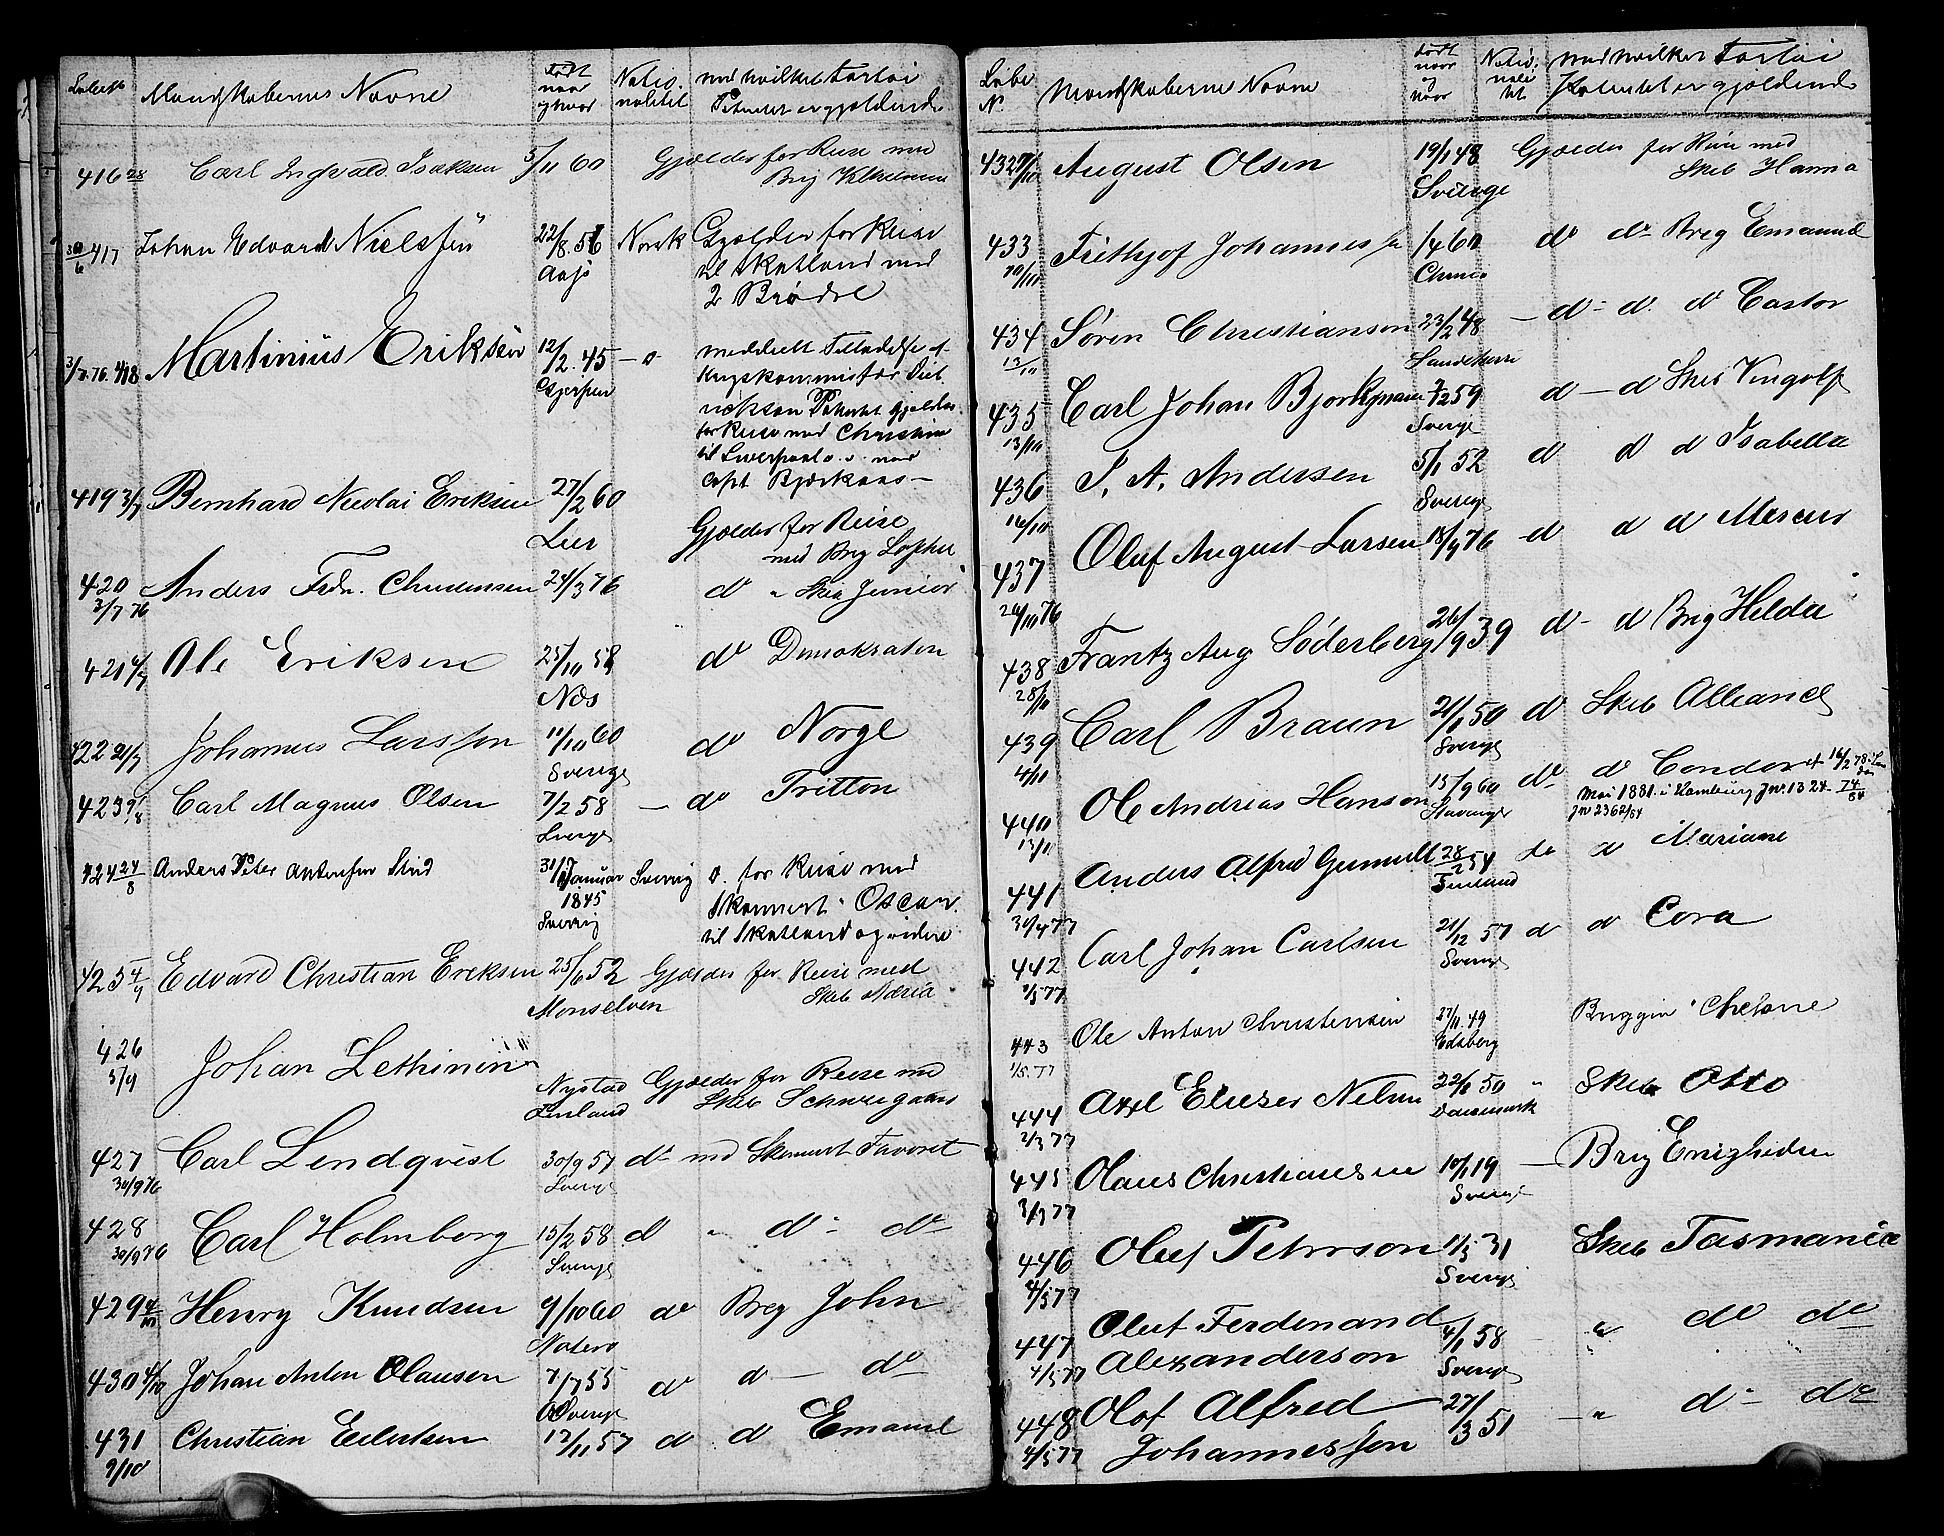 Mandskabernes Navne
født naar og hvor
Natio-nalitet
med hvilket Fartøi Patentet er gjældende
416 28 Carl Ingvald Isaksen 5/11 60 Gjælder for Reise med
Brig
30/6 417 Johan Edvard Nielssen 22/8 56 Norsk Gjælder for Reise
til Skotland med
2 Brødre
3/7 76. 418 Martinius Eriksen 12/2. 45 meddeelt Tilladelse af
Gjerpen
Patentet Gjælder
for Reise med Christine
til Liverpool
Capt. Bjerkaas
419 3/7 Bernhard Nicolai Eriksen 27/2 60
Lier
Gjælder for Reise
med Brig Sophie
420 Anders Fedr. Christensen 24/3 76 do Skib Junior
3/7 76
421 4/7 Ole Eriksen 25/10 58 do Demokraten
Næs
422 21/7 Johannes Larssen 11/10 60 do Norge
Sverige
423 9/8 Carl Magnus Olsen 7/2 58 — do Tritton
Sverge
424 24/8 Anders Peter Antonsen 31/ Januar Sverrig d. for Reise med
1845 Skonnert Oscar
Sverrig til Skotland og videre
425 4/9 Edvard Christian Eriksen 25/6 52 Gjælder for Reise med
Monselven Skib Maria
426
5/9 Johan Lethinin
Nystad Gjælder for Reise med
Finland Skib Schweigaard
427 Carl Lendqvist 30/9 57 do med Skonnert Favoret
30/9 76 Sverge
428 Carl Holmborg 15/2 58 d " do do
30/9 76 Sverige
429 4/10 Henry Knudsen 9/10 60 do Breg John
Notero
430 4/10 Johan Anton Olausen 7/7 55 do d — do
Sverige
431 Christian Eilertsen 12/11 57 d d Emanuel
9/10
Løbe N.
Mandskabernes Navne
født naar og hvor
Natio-nali-tet
med hvilket Fartøi
Patentet er gjældende
432 7/10 August Olsen 19/1 48 Gjælder for Reise med
Sverige Skib Hanna
433 Frithjof Johannessen 1/4 60 do do Breg Emanuel
10/10
434 Søren Christianson 23/2 48 — d - d. d Castor
13/10
435 Carl Johan Bjorkman 7/2 59 d — d Skib Vingolf
13/10 Sverige
436 S. A. Andersen 5/1 52 d d d Isabella
16/10 Sverige
437 Oluf August Larsen 18/9 76 d d d Mercur
26/10 76
438 Frantz Aug Söderberg 26/9 39 d - d Brig Hilda
28/10
439 Carl Braun 21/1 50 d Skib Alliance
4/11 Sverige
440 Ole Andreas Hanson 15/9 60 do d Condor
13/11 Stavanger Mai 1881 i Hamburg Jn. 1324
441 Anders Alfred 28/2 54 do d Mariane
30/4 77 Finland
442 Carl Johan Carlsen 21/12 57 d d Cora
1/5 77 Sverige
443 Ole Anton Christensen 27/11. 49
1/5. 77 Edsberg
444 Axel Elieser Nelsen 22/8 50 " Skib Otto
2/3 77 Danemark
445 Olaus Christiansen 10/1 19 — Brig Enigheden
3/3 77 Sverige
446 Oluf Peterson 1/5 31 Skib Tasmania
4/5 77 Sverige
447 Olut Ferdenand 4/1 58 " do do
4/5 77 Alexanderson Sverige
448 Olof Alfred 27/3 51 — " d - do
4/5 77 Johannesson